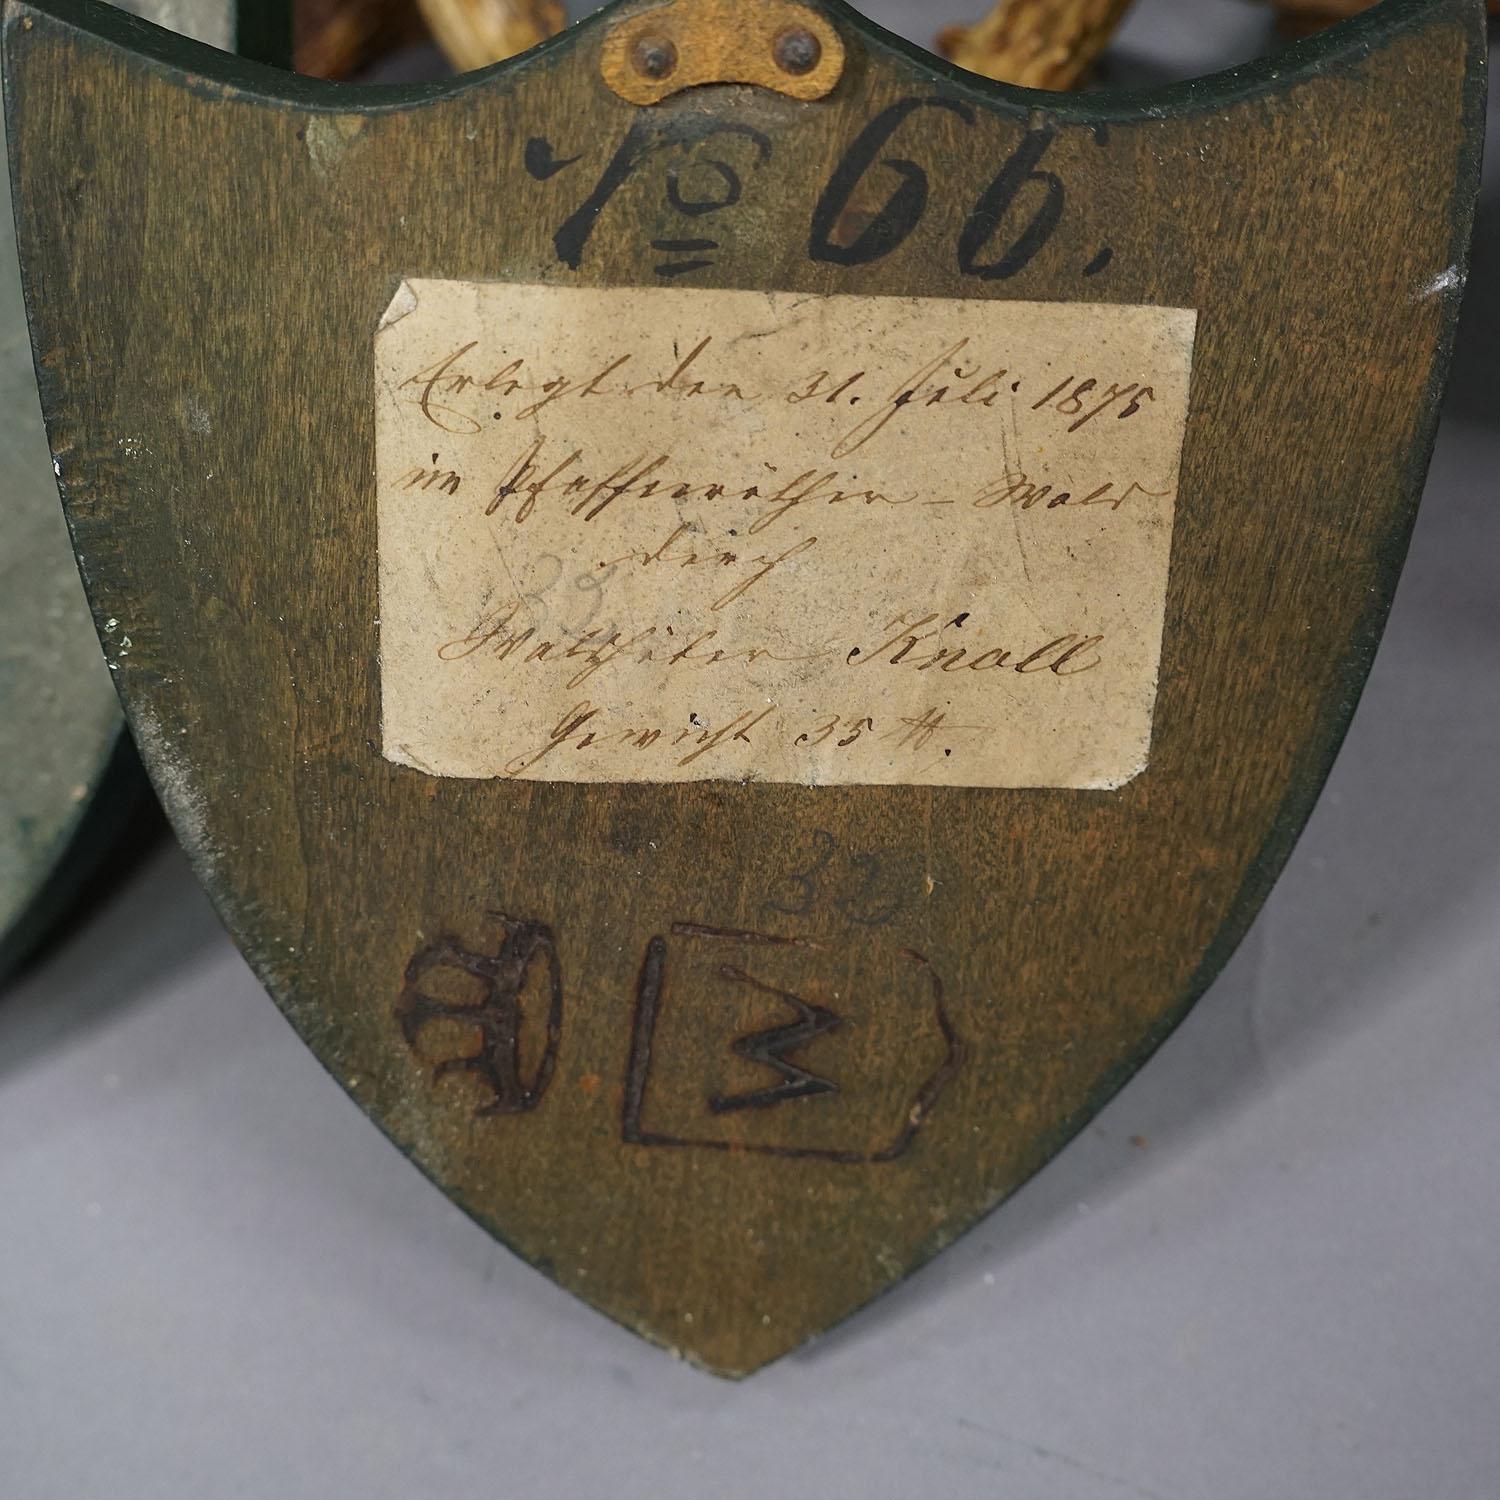 No 66.
Erlegt den 31. Juli 1875
im Pfaffenröther-Wald
durch
Waldhüter Knoll
Gewicht 35 ℔.
33
W